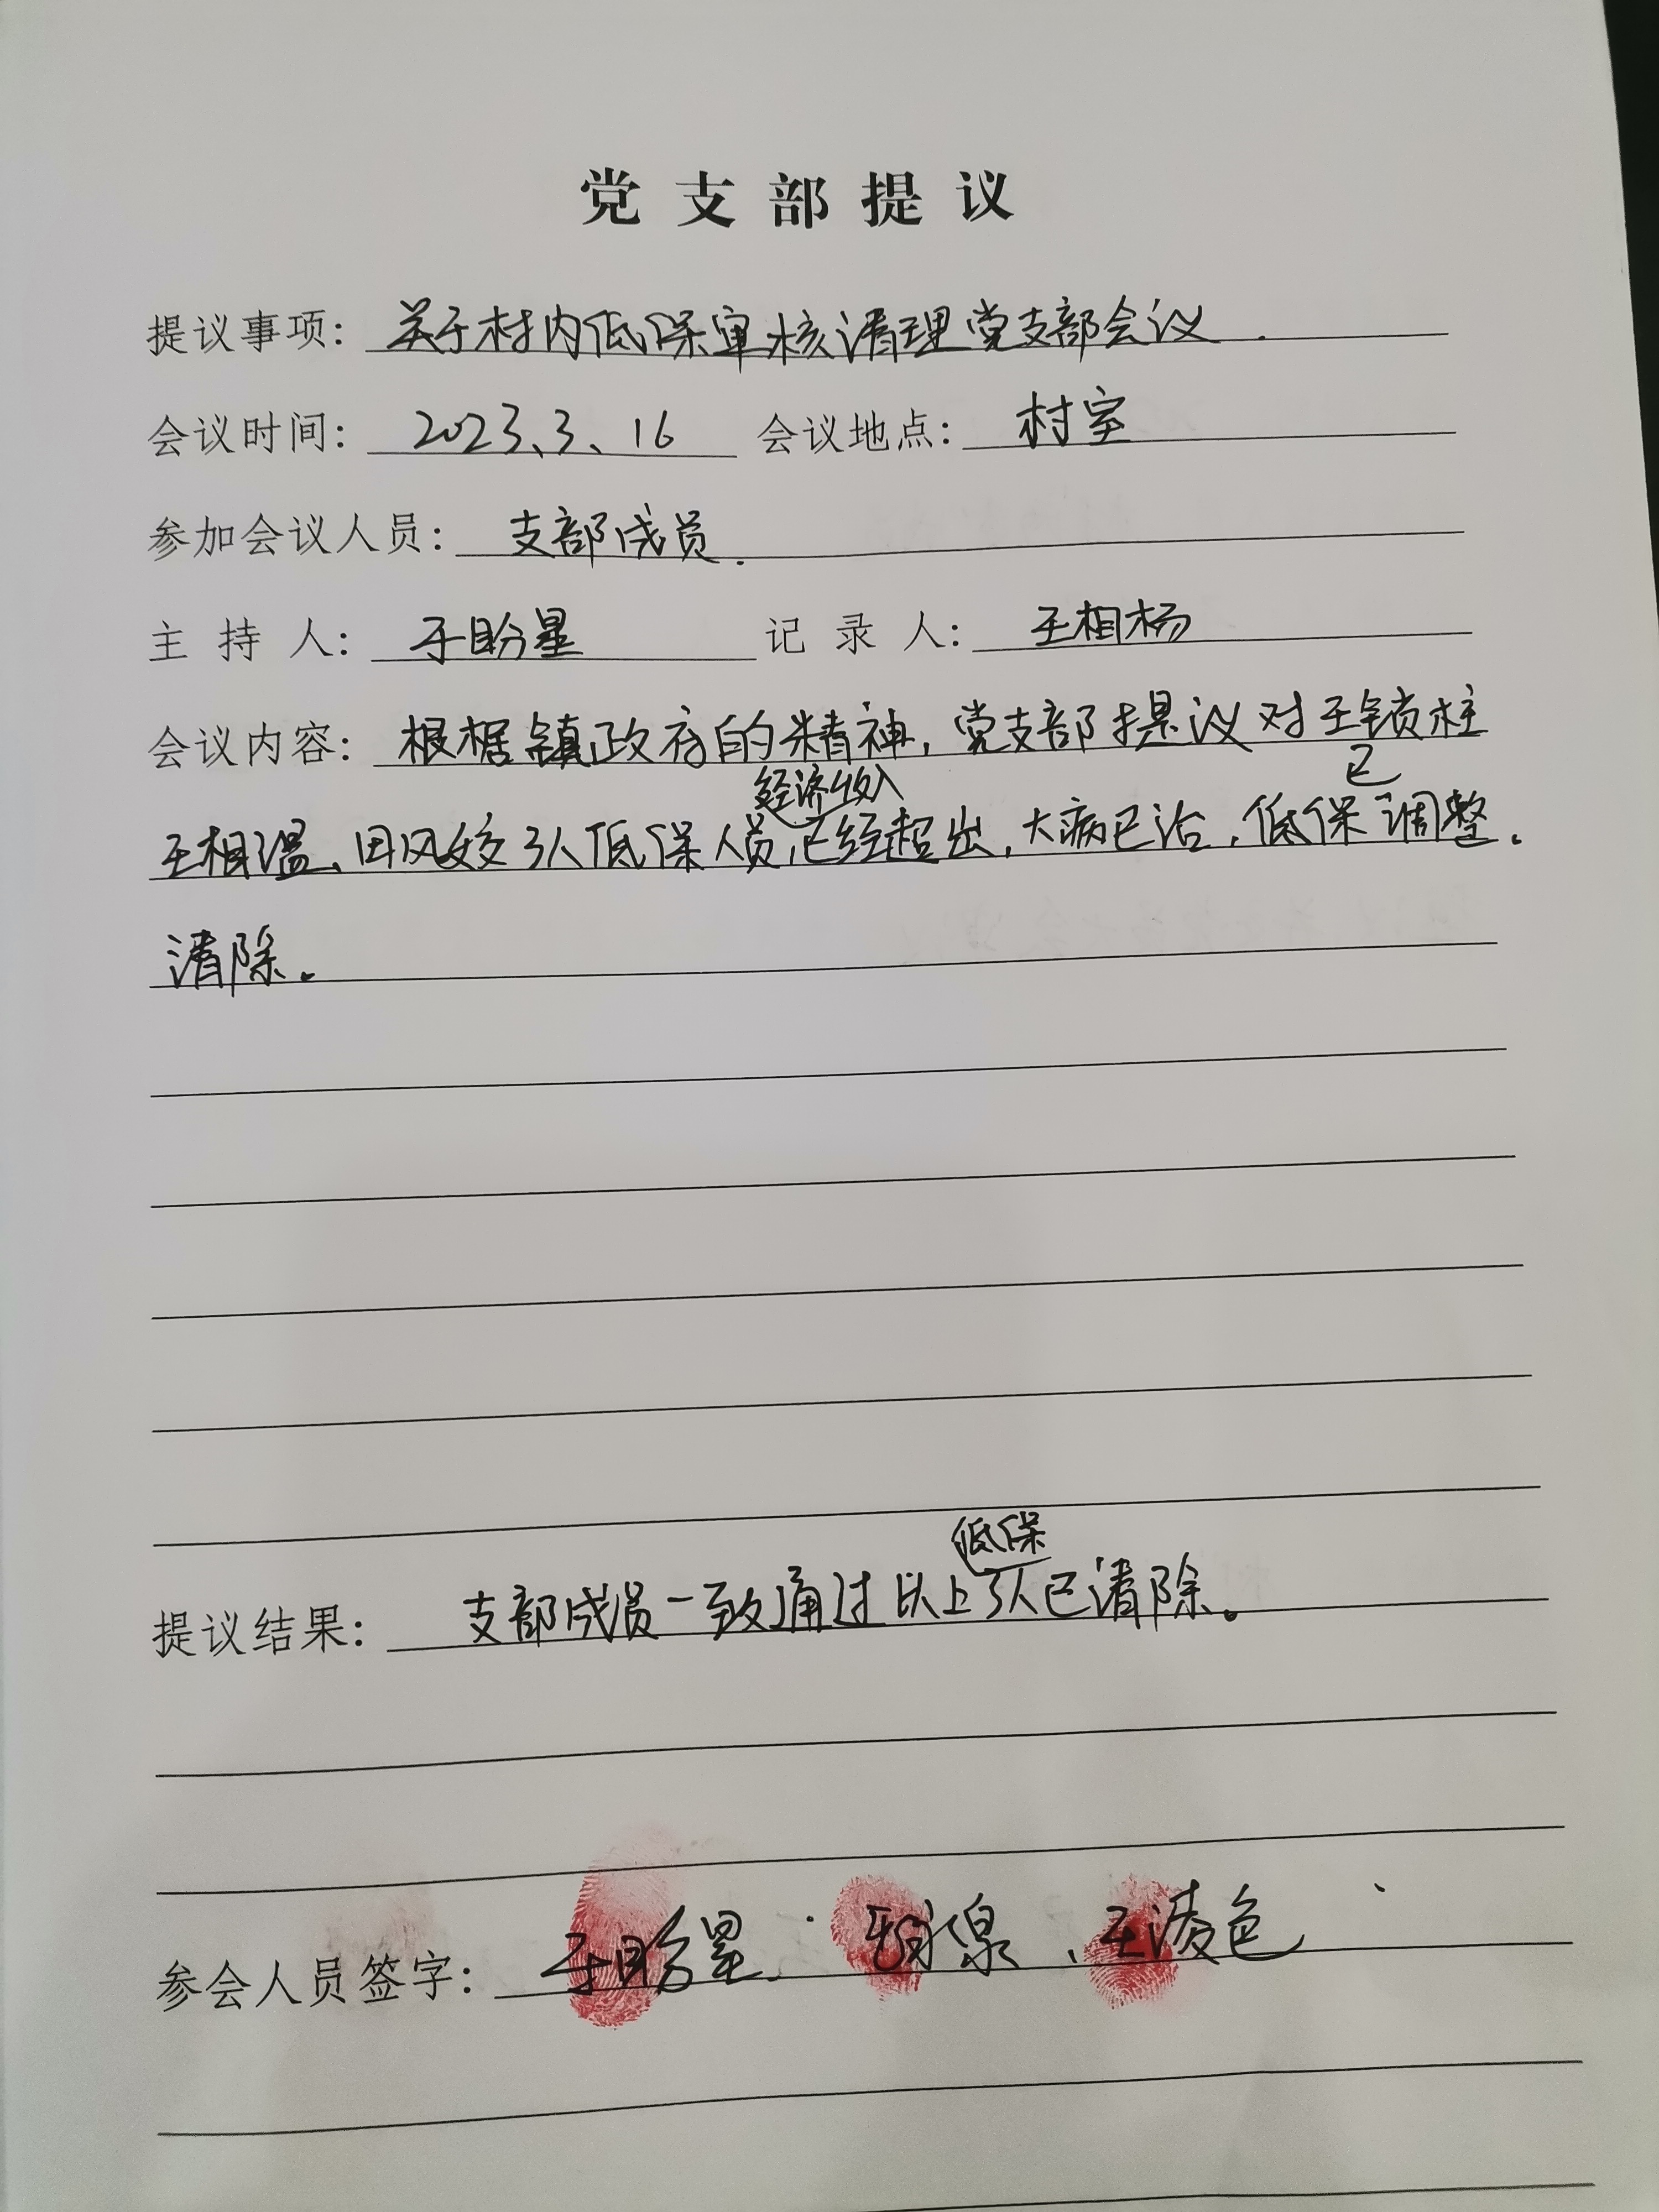 党支部提议
提议事项：关于村内低保审核清理党支部会议.
会议时间：2023、3、16 会议地点：村室
参加会议人员：支部成员.
主持人：于盼星 记录人：王相杨
会议内容：根据镇政府的精神，党支部提议对王锁柱
经济收入 已
王相温、田风姣3人低保人员，已经超出，大病已治，低保调整。
清除。
低保
提议结果：支部成员一致通过以上3人已清除。
参会人员签字：于盼星. 王凌色